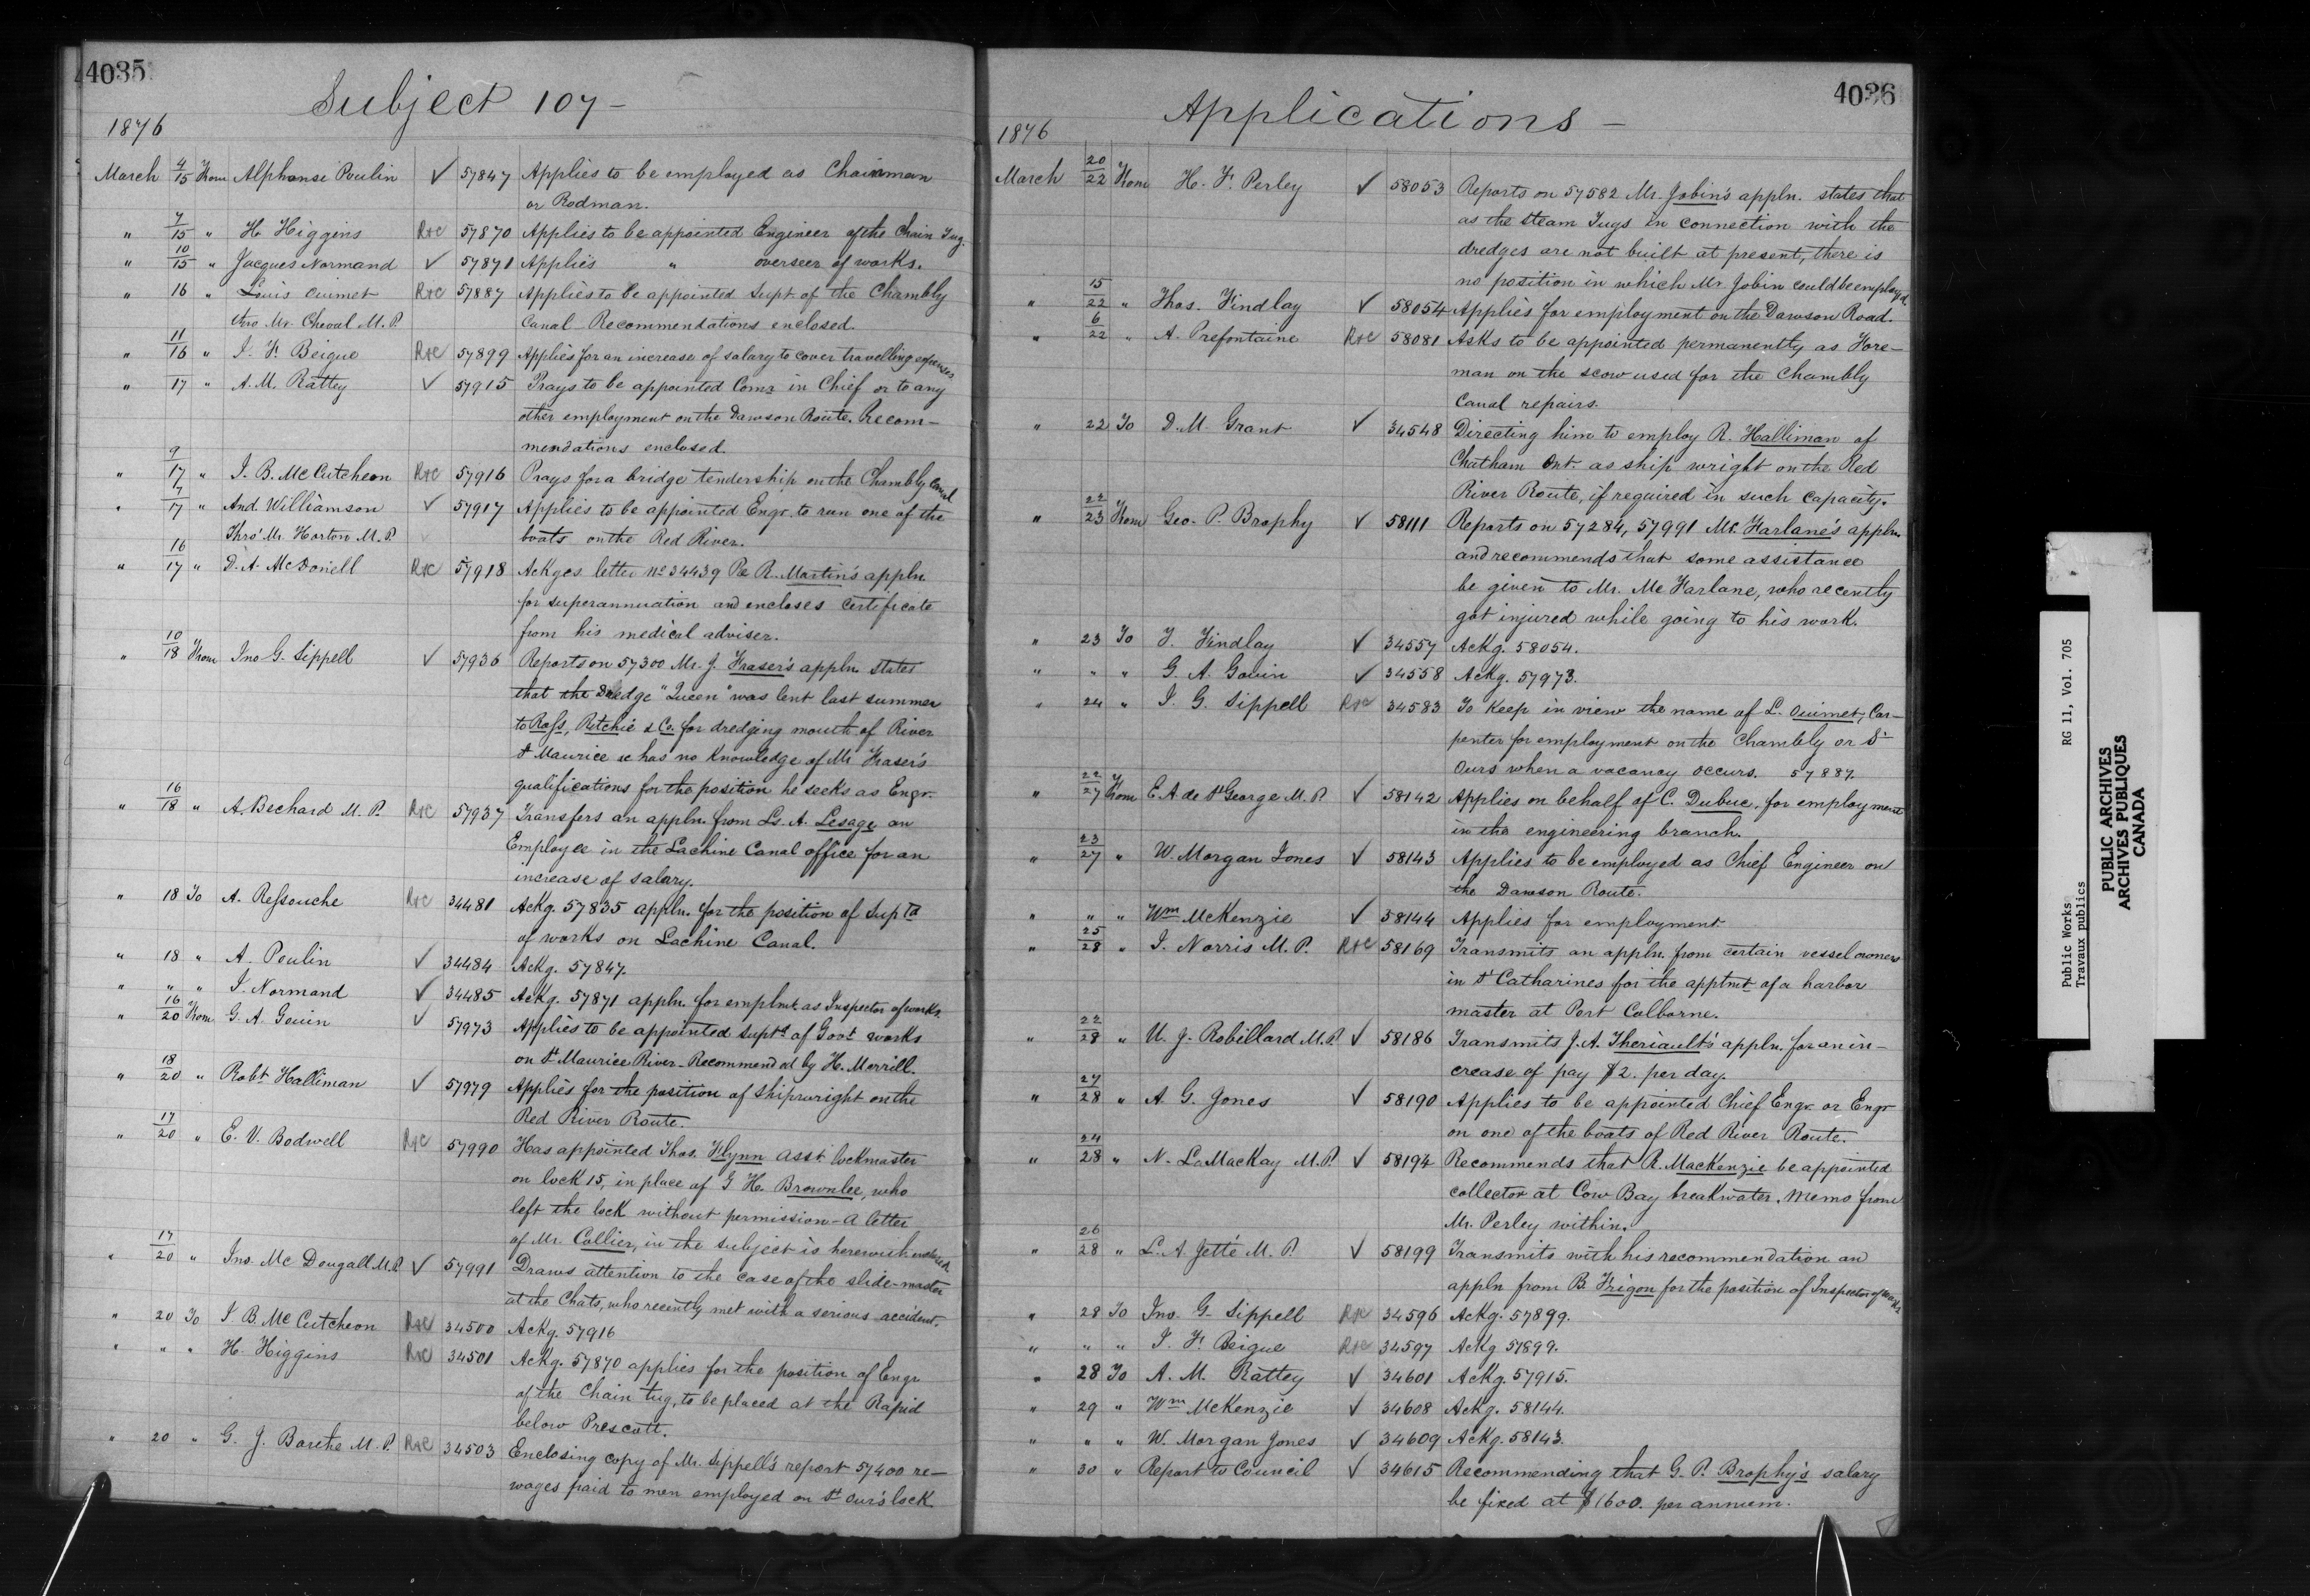 4035
Subject 107 -
1876
March 4/15 From Alphonse Poulin ✓ 57847 Applies to be employed as Chainman
or Rodman.
" 7/15 " H. Higgins R&C 57870 Applies to be appointed Engineer of the Chain Tug.
" 10/15 " Jacques Normand ✓ 57871 Applies " overseer of works.
" 16 " Louis Ouimet R&C 57887 Applies to be appointed Supt. of the Chambly
thro Mr. Cheval M.P. Canal. Recommendations enclosed.
" 11/16 " J. F. Beique R&C 57899 Applies for an increase of salary to cover travelling expenses
" 17 " A. M. Rattey ✓ 57915 Prays to be appointed Comr in Chief or to any
other employment on the Dawson Route. Recom-
mendations enclosed.
" 9/17 " J. B. McCutcheon R&C 57916 Prays for a bridge tendership on the Chambly Canal
" 7/17 " And. Williamson ✓ 57917 Applies to be appointed Engr. to run one of the
Thro' Mr. Horton M.P. boats on the Red River.
" 16/17 " D. A. McDonell R&C 57918 Ackges letter No 34439 Re R. Martin's appln.
for superannuation and encloses certificate
from his medical adviser.
" 10/18 From Jno G. Sippell ✓ 57936 Reports on 57300 Mr. J. Fraser's appln. states
that the Dredge "Queen" was lent last summer
to Ross, Ritchie & Co. for dredging mouth of River
St Maurice & has no knowledge of Mr Fraser's
qualifications for the position he seeks as Engr.
" 16/18 " A. Bechard M.P. R&C 57937 Transfers an appln. from Ls. A. Lesage an
Employee in the Lachine Canal office for an
increase of salary.
" 18 To A. Ressouche R&C 34481 Ackg. 57835 appln. for the position of Suptd
of works on Lachine Canal.
" 18 " A. Poulin ✓ 34484 Ackg. 57847.
" " " J. Normand ✓ 34485 Ackg. 57871 appln. for emplmt. as Inspector of works.
" 16/20 From G. A. Gouin ✓ 57973 Applies to be appointed Suptd of Govt works
on St Maurice River - Recommended by H. Merrill.
" 18/20 " Robt Halliman ✓ 57979 Applies for the position of Shipwright on the
Red River Route.
" 17/20 " E. V. Bodwell R&C 57990 Has appointed Thos. Flynn asst lockmaster
on lock 15, in place of G H. Brownlee, who
left the lock without permission - A letter
of Mr. Collier, in the subject is herewith enclosed
" 17/20 " Jno. McDougall M.P. ✓ 57991 Draws attention to the case of the slide-master
at the Chats, who recently met with a serious accident.
" 20 To J B. McCutcheon R&C 34500 Ackg. 57916
" " " H. Higgins R&C 34501 Ackg. 57870 applies for the position of Engr
of the Chain tug, to be placed at the Rapid
below Prescott.
" 20 " G. J. Barthe M.P. R&C 34503 Enclosing copy of Mr. Sippell's report 57400 re-
wages paid to men employed on St Our's lock
4036
Applications -
1876
March 20/22 From H. F. Perley ✓ 58053 Reports on 57582 Mr. Jobin's appln. states that
as the Steam Tugs in connection with the
dredges are not built at present, there is
no position in which Mr Jobin could be employed.
" 15/22 " Thos. Findlay ✓ 58054 Applies for employment on the Dawson Road.
" 6/22 " A. Prefontaine R&C 58081 Asks to be appointed permanently as Fore-
man on the scow used for the Chambly
Canal repairs.
" 22 To D. M. Grant ✓ 34548 Directing him to employ R. Halliman of
Chatham Ont. as ship wright on the Red
River Route, if required in such capacity.
" 22/23 From Geo. P. Brophy ✓ 58111 Reports on 57284, 57991 Mc Farlane's appln.
and recommends that some assistance
be given to Mr. Mc Farlane, who recently
got injured while going to his work.
" 23 To T. Findlay ✓ 34557 Ackg. 58054.
" " " G. A. Gouin ✓ 34558 Ackg. 57973.
" 24 " J. G. Sippell R&C 34583 To keep in view the name of L. Ouimet, Car-
penter for employment on the Chambly or St
Ours when a vacancy occurs. 57887
" 22/27 From E. A de St George M.P. ✓ 58142 Applies on behalf of C. Dubuc, for employment
in the engineering branch.
" 23/27 " W. Morgan Jones ✓ 58143 Applies to be employed as Chief Engineer on
the Dawson Route.
" " " Wm McKenzie ✓ 58144 Applies for employment
" 25/28 " J. Norris M.P. R&C 58169 Transmits an appln. from certain vessel owners
in St Catharines for the apptmt of a harbor
master at Port Colborne.
" 22/28 " U. J. Robillard M.P. ✓ 58186 Transmits J. A. Theriault's appln. for an in-
crease of pay $2. per day.
" 27/28 " A. G. Jones ✓ 58190 Applies to be appointed Chief Engr. or Engr
on one of the boats of Red River Route.
" 24/28 " N. LeMacKay M.P. ✓ 58194 Recommends that R. MacKenzie be appointed
collector at Cow Bay breakwater. Memo from
Mr. Perley within.
" 26/28 " L. A. Jetté M.P. ✓ 58199 Transmits with his recommendation an
appln from B. Frigon for the position of Inspector of works
" 28 To Jno. G. Sippell R&C 34596 Ackg. 57899.
" " " J. F. Beique R&C 34597 Ackg 57899.
" 28 To A. M. Rattey ✓ 34601 Ackg. 57915.
" 29 " Wm McKenzie ✓ 34608 Ackg. 58144.
" " " W. Morgan Jones ✓ 34609 Ackg. 58143.
" 30 " Report to Council ✓ 34615 Recommending that G. P. Brophy's salary
be fixed at $1600. per annum.
Public Works RG 11, Vol. 705
Travaux publics
PUBLIC ARCHIVES
ARCHIVES PUBLIQUES
CANADA